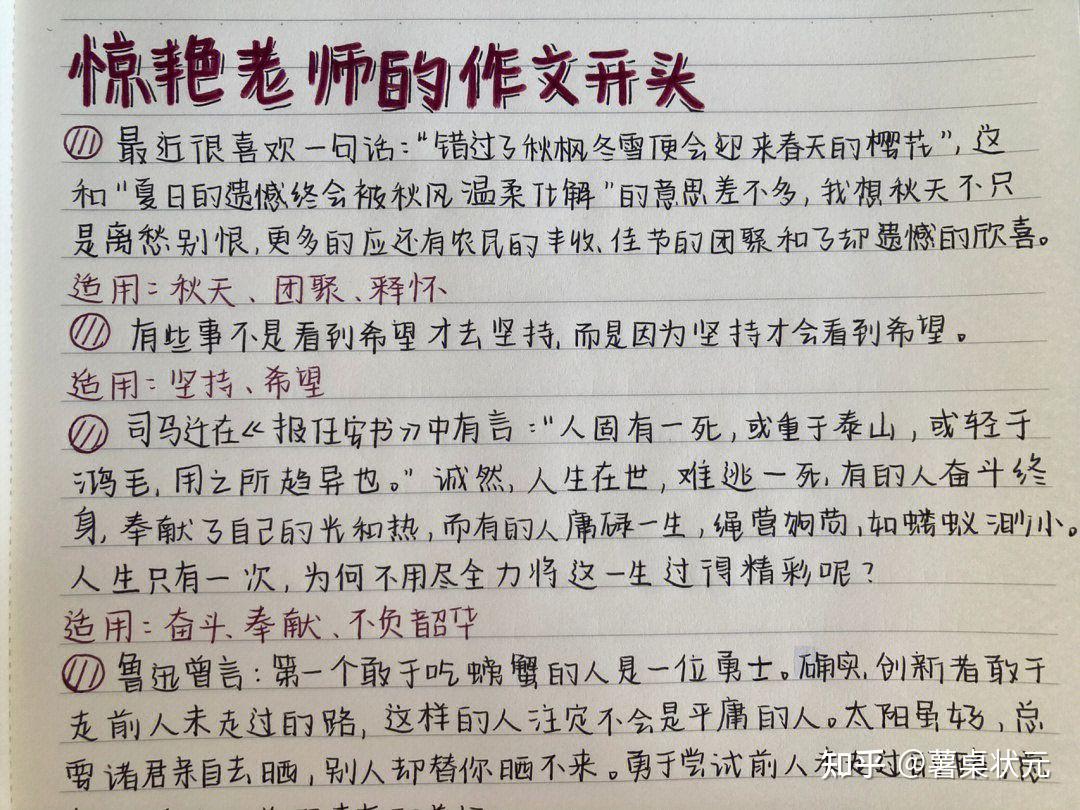 惊艳老师的作文开头
最近很喜欢一句话:“错过了秋枫冬雪便会迎来春天的樱花”,这
和“夏日的遗憾终会被秋风温柔化解”的意思差不多,我想秋天不只
是离愁别恨,更多的应还有农民的丰收、佳节的团聚和了却遗憾的欣喜。
适用:秋天、团聚、释怀
有些事不是看到希望才去坚持,而是因为坚持才会看到希望。
适用:坚持、希望
司马迁在《报任安书》中有言:“人固有一死,或重于泰山,或轻于
鸿毛,用之所趋异也。”诚然,人生在世,难逃一死,有的人奋斗终
身,奉献了自己的光和热,而有的人庸碌一生,蝇营狗苟,如蝼蚁渺小。
人生只有一次,为何不用尽全力将这一生过得精彩呢?
适用:奋斗、奉献、不负韶华
鲁迅曾言:第一个敢于吃螃蟹的人是一位勇士。确实,创新者敢于
走前人未走过的路,这样的人注定不会是平庸的人。太阳虽好,总
需诸君亲自去晒,别人却替你晒不来。勇于尝试前人未走过
知乎 @薯桌状元